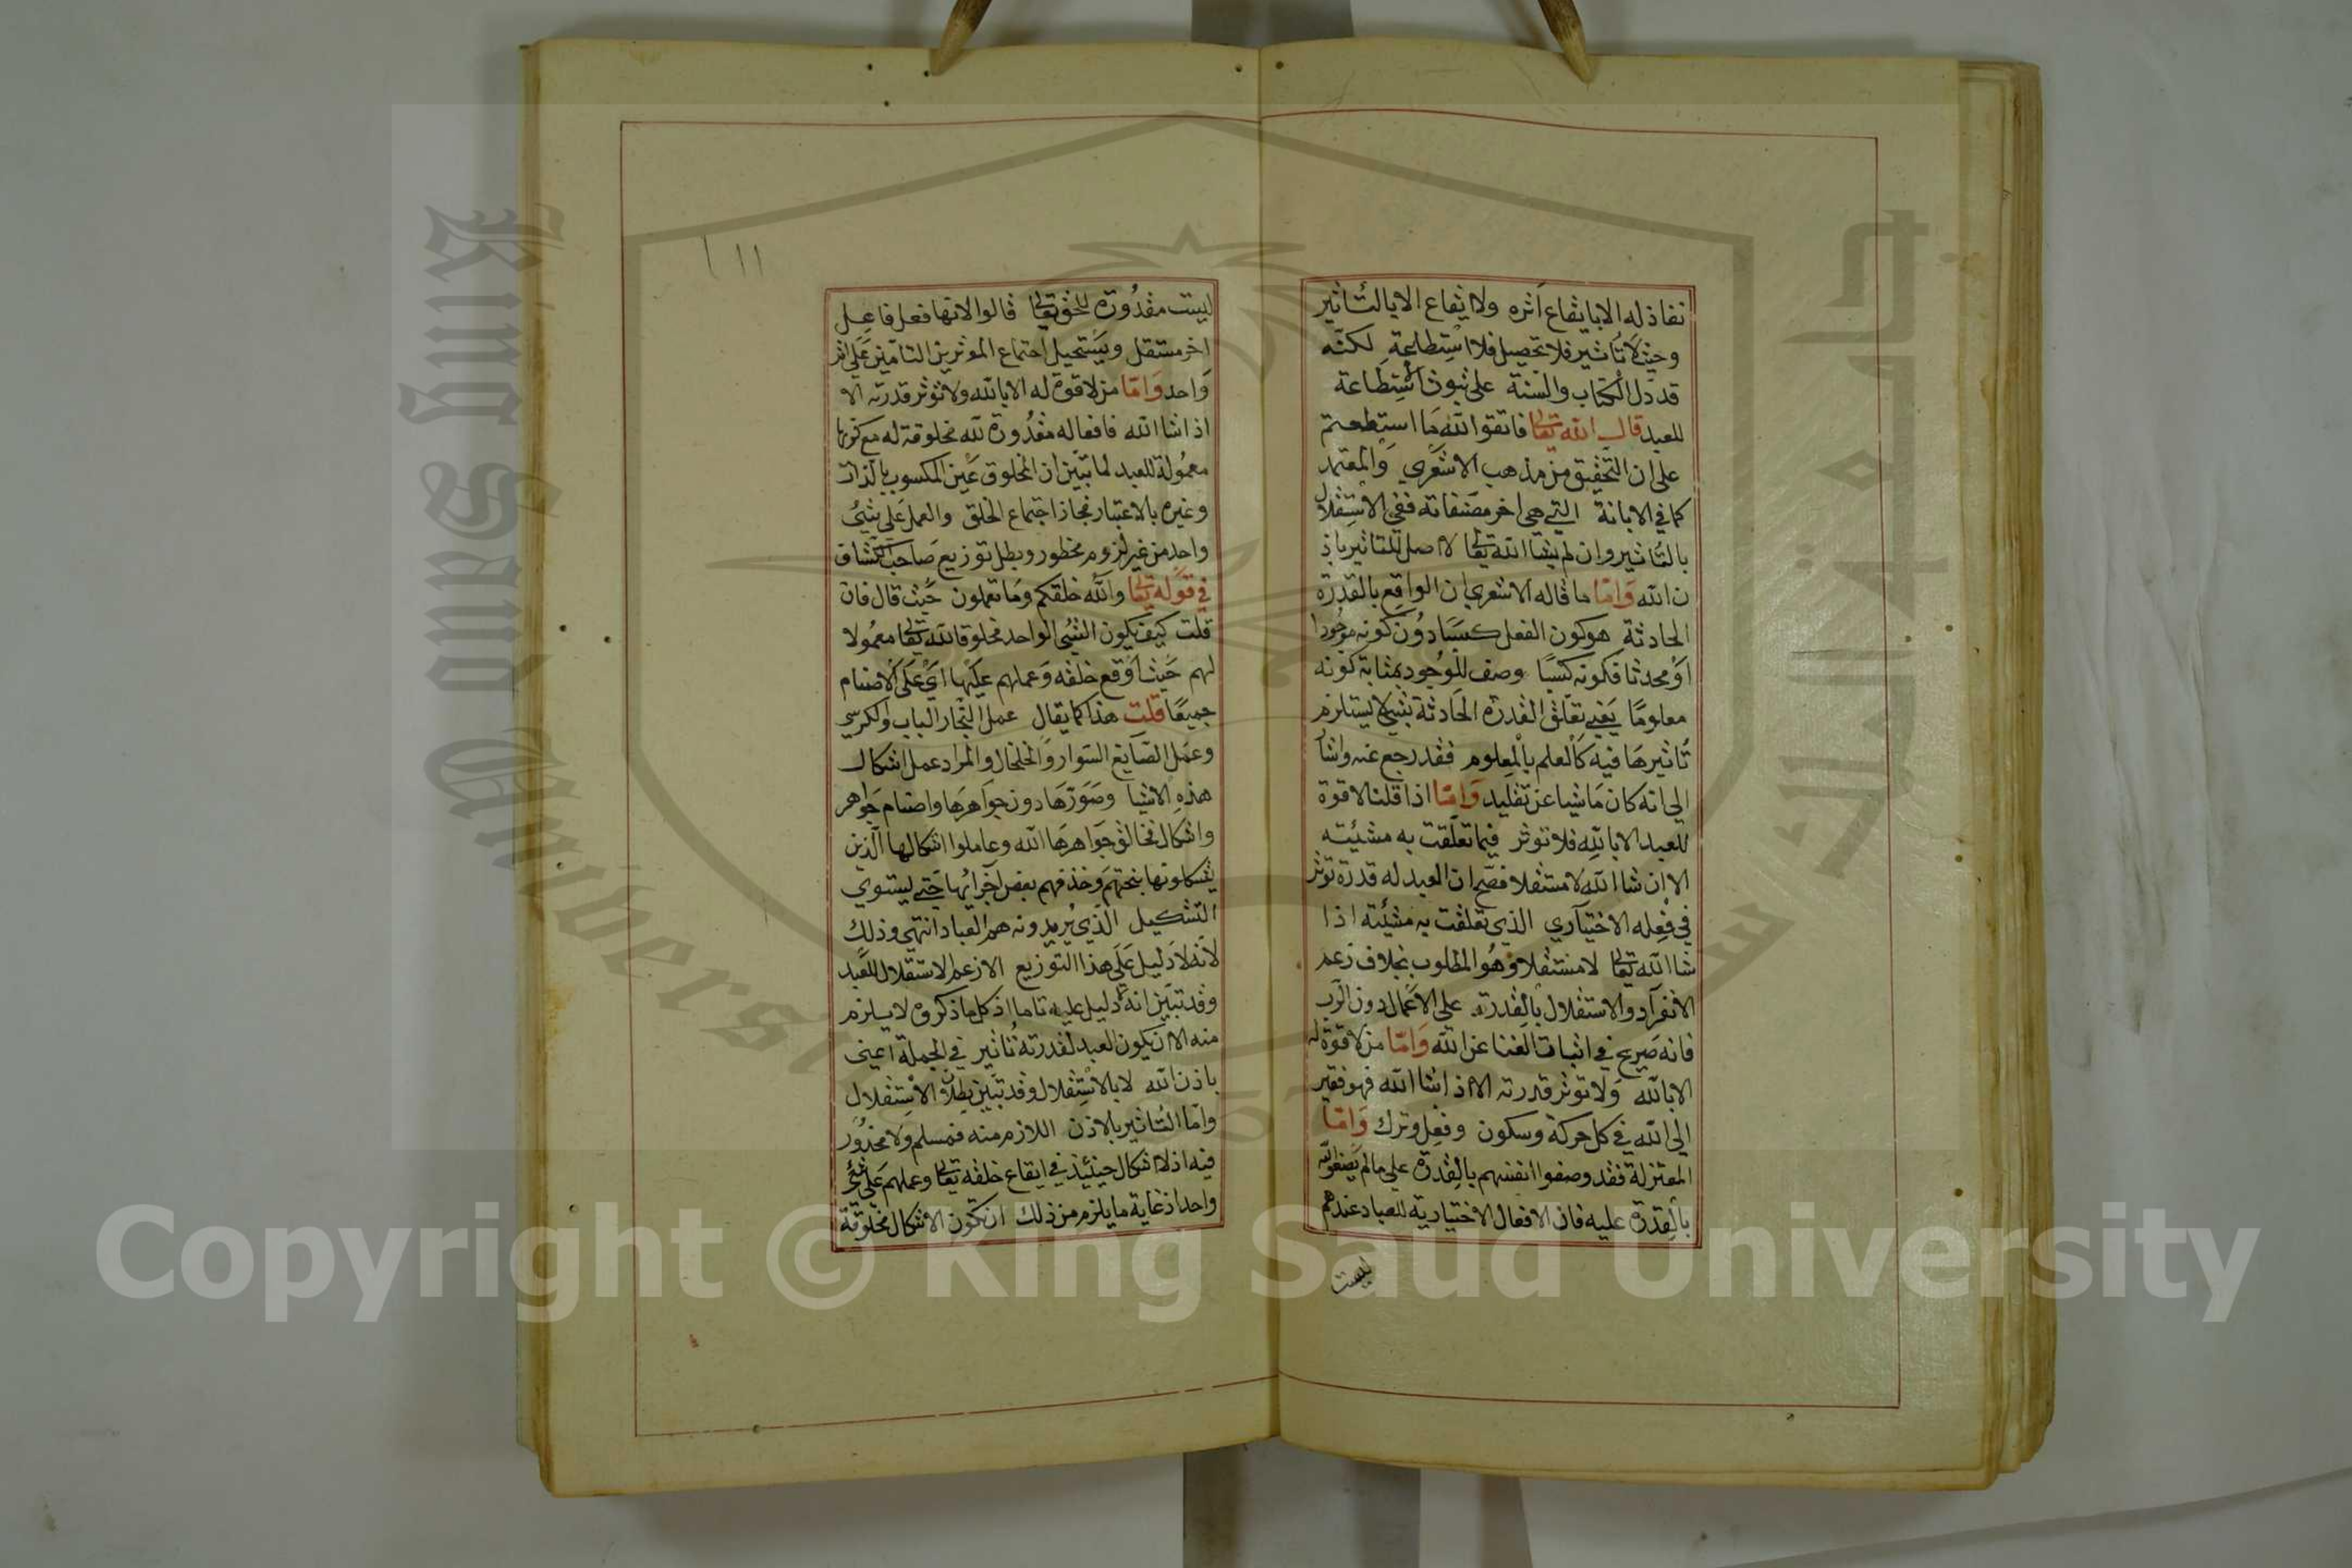 نفاذ له الا بايقاع أثره ولا ايقاع الا بالتأثير
وحيث لا تأثير فلا تحصيل فلا استطاعة لكنه
قد دل الكتاب والسنة على ثبوت استطاعة
للعبد قال الله تعالى فاتقوا الله ما استطعتم
على ان التحقيق من مذهب الاشعري والمعتمد
كما في الابانة التي هي اخر مصنفاته ففي الاستقلال
بالتأثير وان لم يشا الله تعالى لا اصل للتاثير باذ
ن الله واما ما قاله الاشعري ان الواقع بالقدرة
الحادثة هو كون الفعل كسبا دون كونه موجودا
أو محدثا فكونه كسبًا وصف للوجود بمثابة كونه
معلومًا يعني تعلق القدرة الحادثة بشي لا يستلزم
تأثيرها فيه كالعلم بالمعلوم فقد رجع عنه واشا
الى انه كان ماشيا عن تقليد واما اذا قلنا لا قوة
للعبد الا بالله فلا تؤثر فيما تعلقت به مشيئته
الا ان شا الله لا مستقلا فصح ان العبد له قدرة توثر
في فعله الاختياري الذي تعلقت به مشيئته اذا
شا الله تعالى لا مستقلا وهو المطلوب بخلاف زعم
الانفراد والاستقلال بالقدرة على الاعمال دون الرب
فانه صريح في اثبات الغنا عن الله واما من لا قوة له
الا بالله ولا توثر قدرته الا اذا شا الله فهو فقير
الى الله في كل حركة وسكون وفعل وترك واما
المعتزلة فقد وصفوا انفسهم بالقدرة على ما لم يصفوا الله
بالقدرة عليه فان الافعال الاختيارية للعباد عندهم
ليست
١١٢
ليست مقدورة للحق تعالى قالوا لانها فعل فاعل
اخر مستقل ويستحيل اجتماع المؤثرين التامين على اثر
واحد واما من لا قوة له الا بالله ولا تؤثر قدرته الا
اذا شا الله فافعاله مقدورة لله مخلوقة له مع كونها
معمولة للعبد لما تبين ان المخلوق عين المكسوب بالذات
وغيره بالاعتبار فجاز اجتماع الخلق والعمل على شيء
واحد من غير لزوم محظور وبطل توزيع صاحب الكشاف
في قوله تعالى والله خلقكم وما تعملون حيث قال فان
قلت كيف يكون الشيء الواحد مخلوقا لله تعالى معمولا
لهم حيث أوقع خلقه وعملهم عليها اي على الاصنام
جميعًا قلت هذا كما يقال عمل النجار الباب والكرسي
وعمل الصايغ السوار والخلخال والمراد عمل اشكال
هذه الاشيا وصورها دون جواهرها واصنام جواهر
واشكال فخالق جواهرها الله وعاملوا اشكالها الذين
يشكلونها بنحتهم وحذفهم بعض أجزائها حتى ليستوي
التشكيل الذي يريدونه هم العباد انتهى وذلك
لانه لا دليل على هذا التوزيع الا زعم الاستقلال للعبد
وقد تبين انه لا دليل عليه تاما اذ كل ما ذكروه لا يسلزم
منه الا ان يكون العبد لقدرته تأثير في الجملة اعني
باذن الله لا بالاستقلال وقد تبين بطلان الاستقلال
واما التأثير بالاذن اللازم منه فمسلم ولا محذور
فيه اذ لا اشكال حينئذ في ايقاع خلقه تعالى وعملهم على شيء
واحد اذ غاية ما يلزم من ذلك ان تكون الاشكال مخلوقة
King Saud University
Copyright © King Saud University